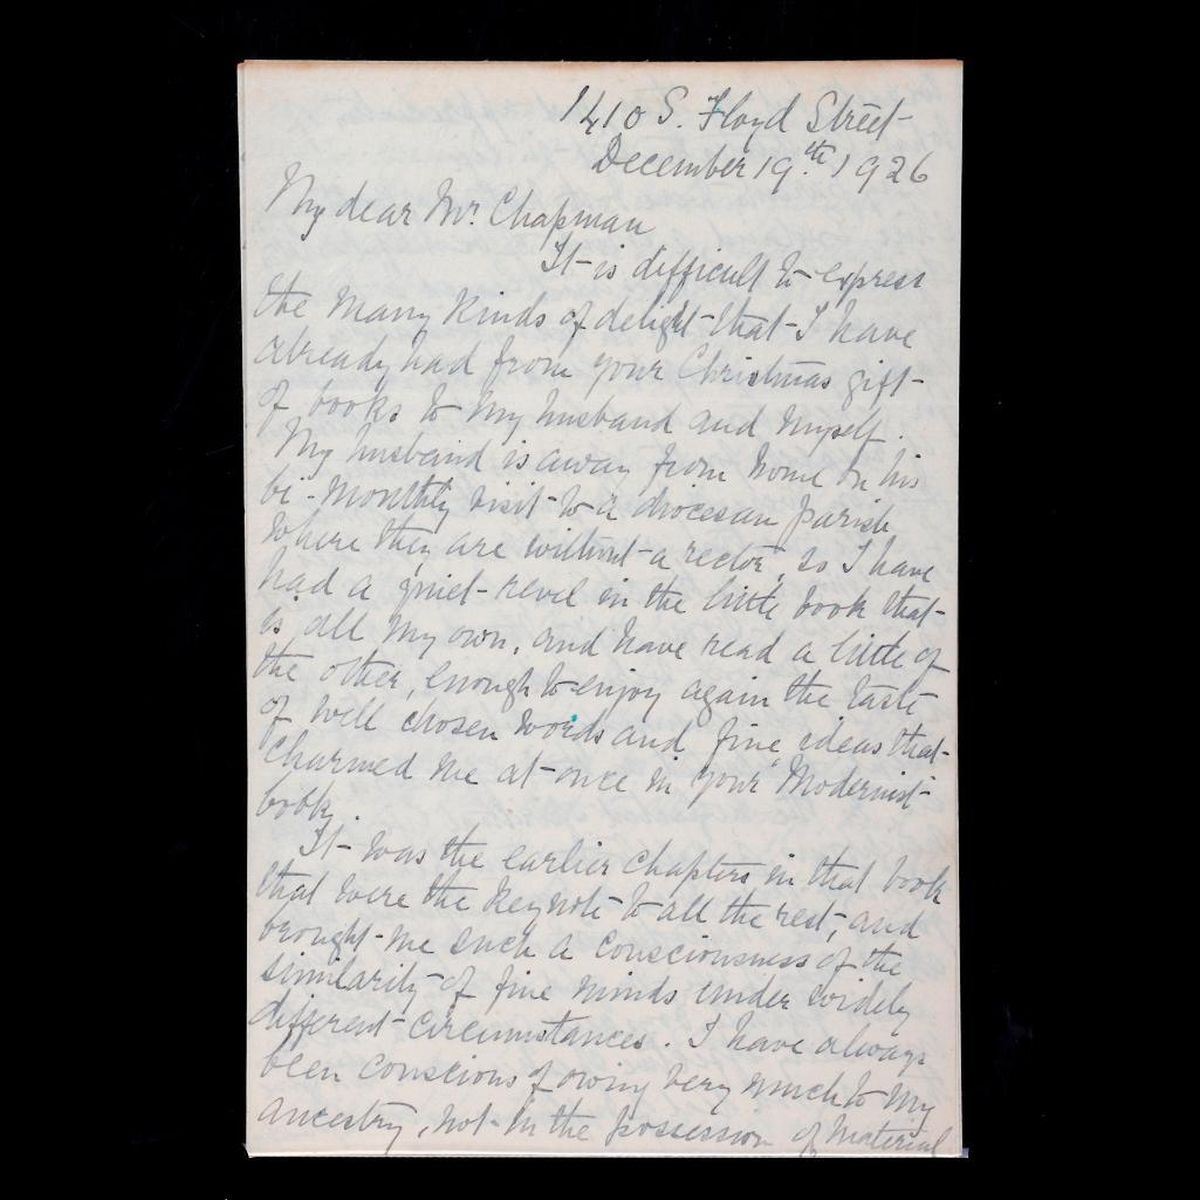 1410 S. Floyd Street
December 19.th 1926
My dear Mr. Chapman
It is difficult to express
the many kinds of delight that I have
already had from your Christmas gift
of books to my husband and myself.
My husband is away from home on his
bi-monthly visit to a diocesan parish
where they are without a rector, so I have
had a quiet revel in the little book that
is all my own, and have read a little of
the other, enough to enjoy again the taste
of well chosen words and fine ideas that
charmed me at once in your "Modernist"
book.
It was the earlier chapters in that book
that were the keynote to all the rest, and
brought me such a consciousness of the
similarity of fine minds under widely
different circumstances. I have always
been conscious of owing very much to my
ancestry, not in the possession of material